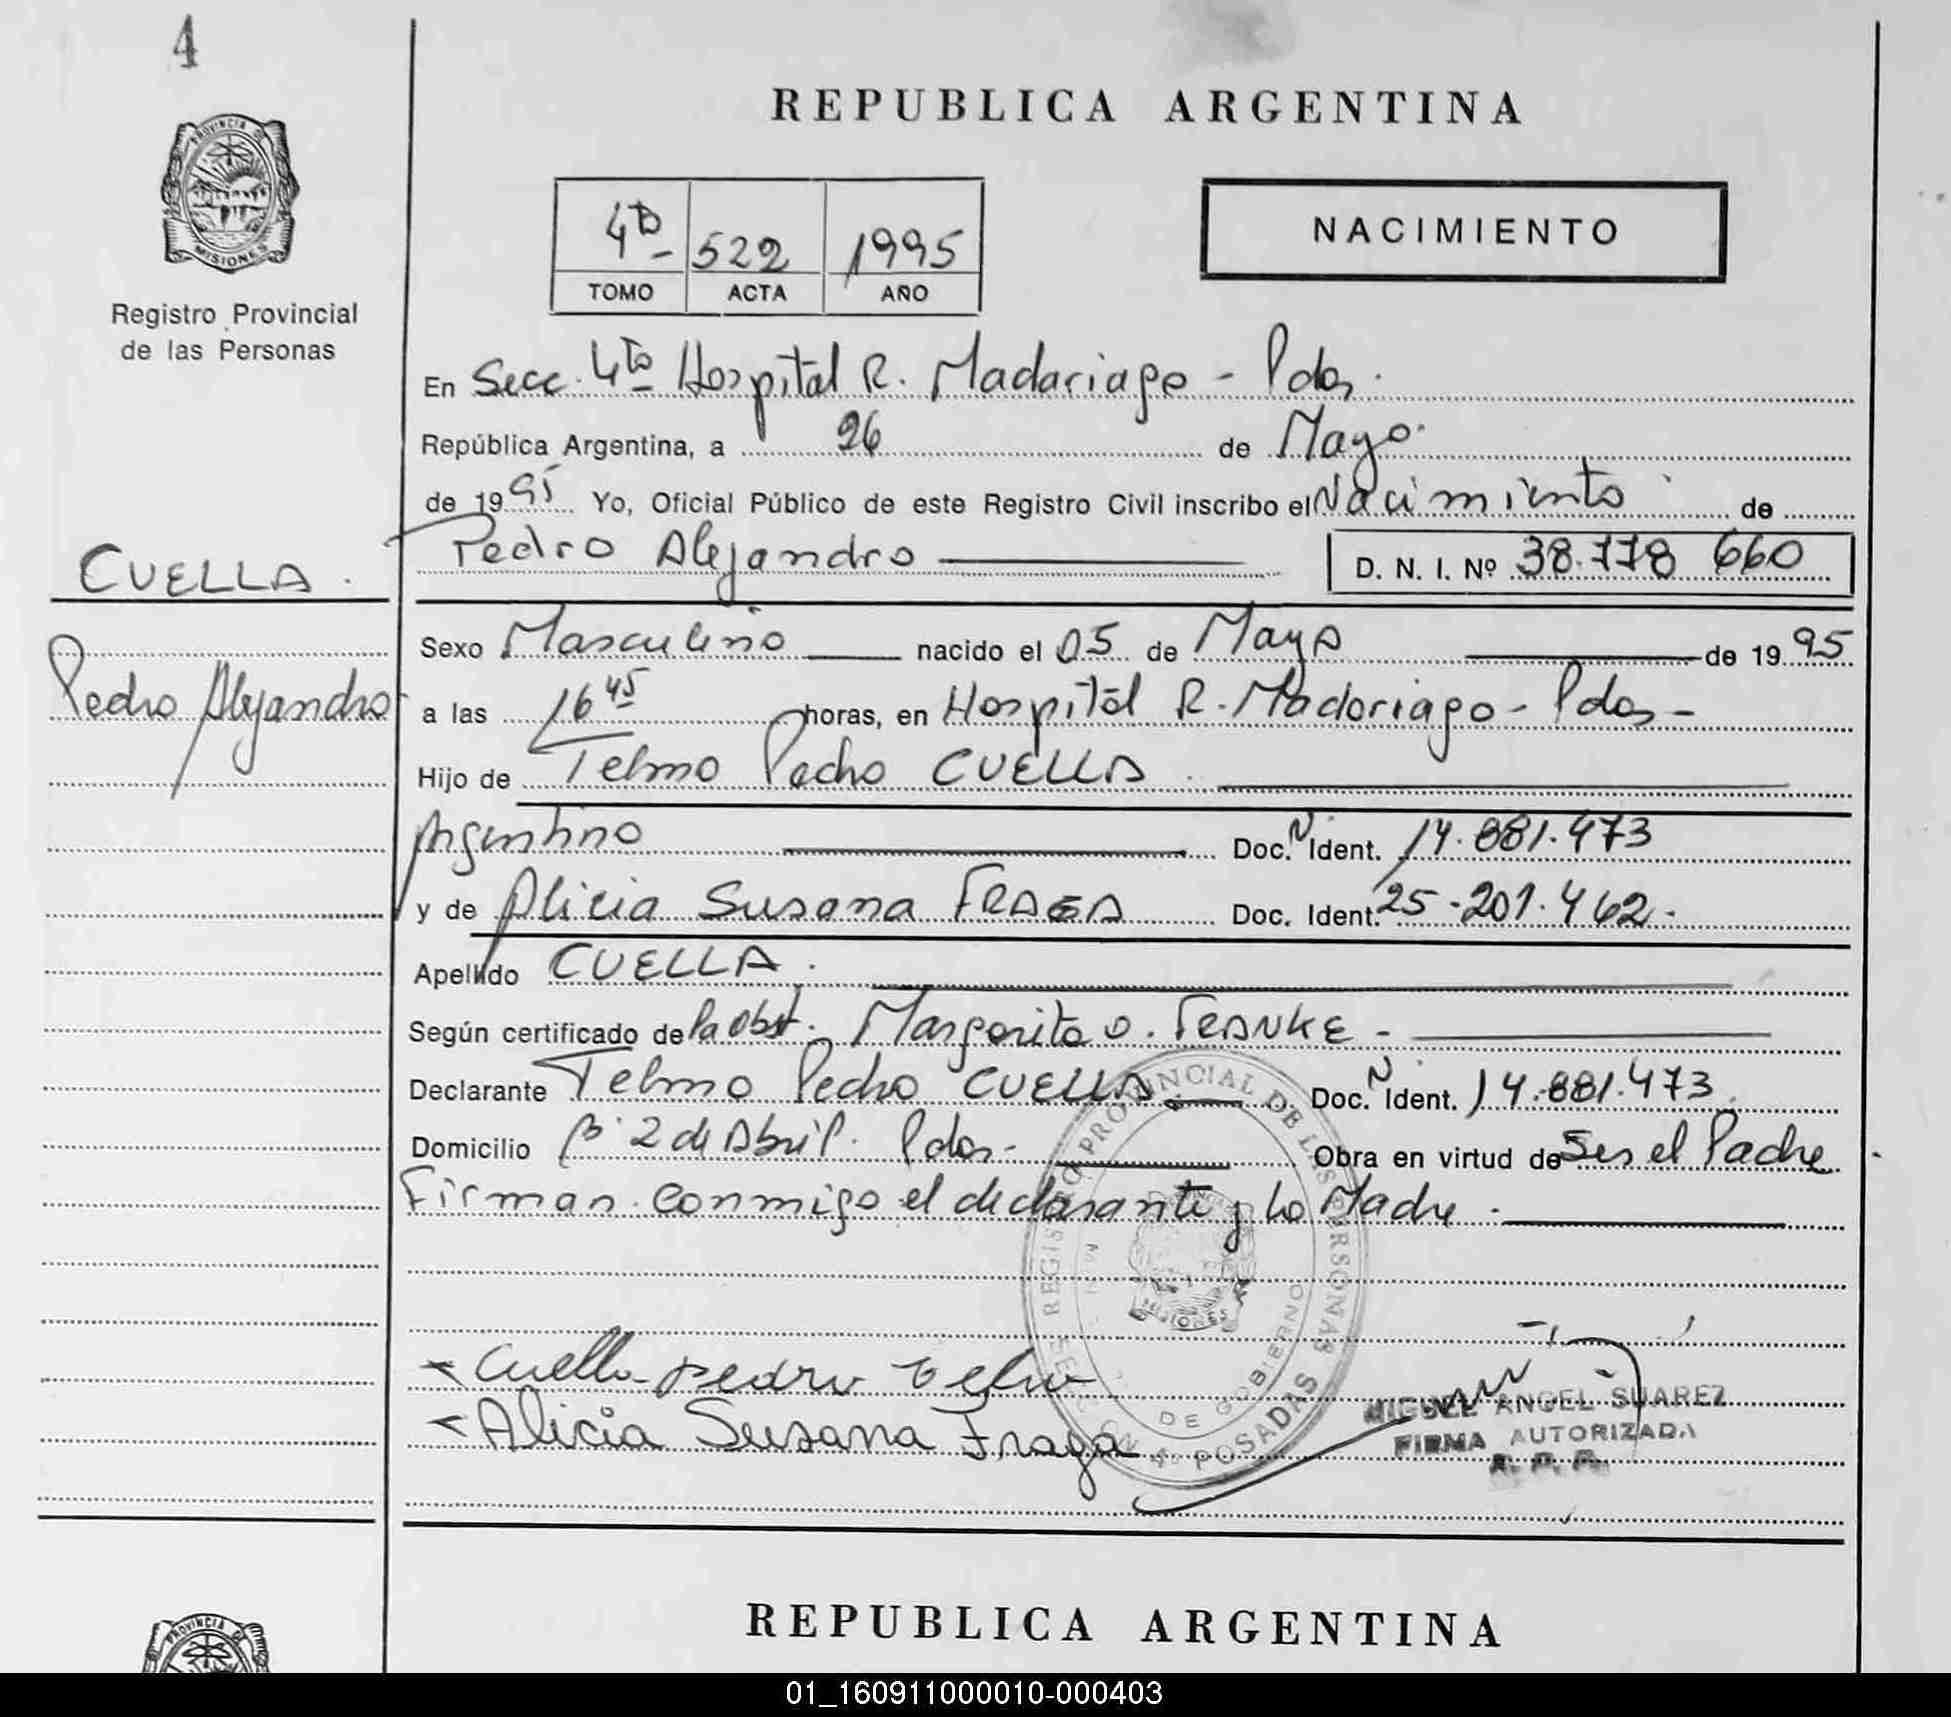 4
PROVINCIA DE
MISIONES
Registro Provincial
de las Personas
REPUBLICA ARGENTINA
4to 522 1995
TOMO ACTA AÑO
NACIMIENTO
En Secc. 4to Hospital R. Madariaga - Pdas.
República Argentina, a 26 de Mayo
de 1995 Yo, Oficial Público de este Registro Civil inscribo el Nacimiento de
Pedro Alejandro D. N. I. Nº 38.778 660
CUELLA.
Pedro Alejandro
Sexo Masculino nacido el 05 de Mayo de 1995
a las 16 45 horas, en Hospital R. Madariaga - Pdas -
Hijo de Telmo Pedro CUELLA
Argentino Doc. N Ident. 14.881.473
y de Alicia Susana FRAGA Doc. Ident. 25.201.462.
Apellido CUELLA.
Según certificado de la Obst. Margarita O. FRANKE -
Declarante Telmo Pedro CUELLA Doc. N Ident. 14.881.473
Domicilio Bº 2 de Abril. Pdas - Obra en virtud de Ser el Padre
Firman conmigo el declarante y la Madre.
REGISTRO PROVINCIAL DE LAS PERSONAS
DE GOBIERNO
MISIONES
POSADAS
Cuella pedro telmo
Alicia Susana Fraga
MIGUEL ANGEL SUAREZ
FIRMA AUTORIZADA
R. P. P.
REPUBLICA ARGENTINA
PROVINCIA DE
01_160911000010-000403